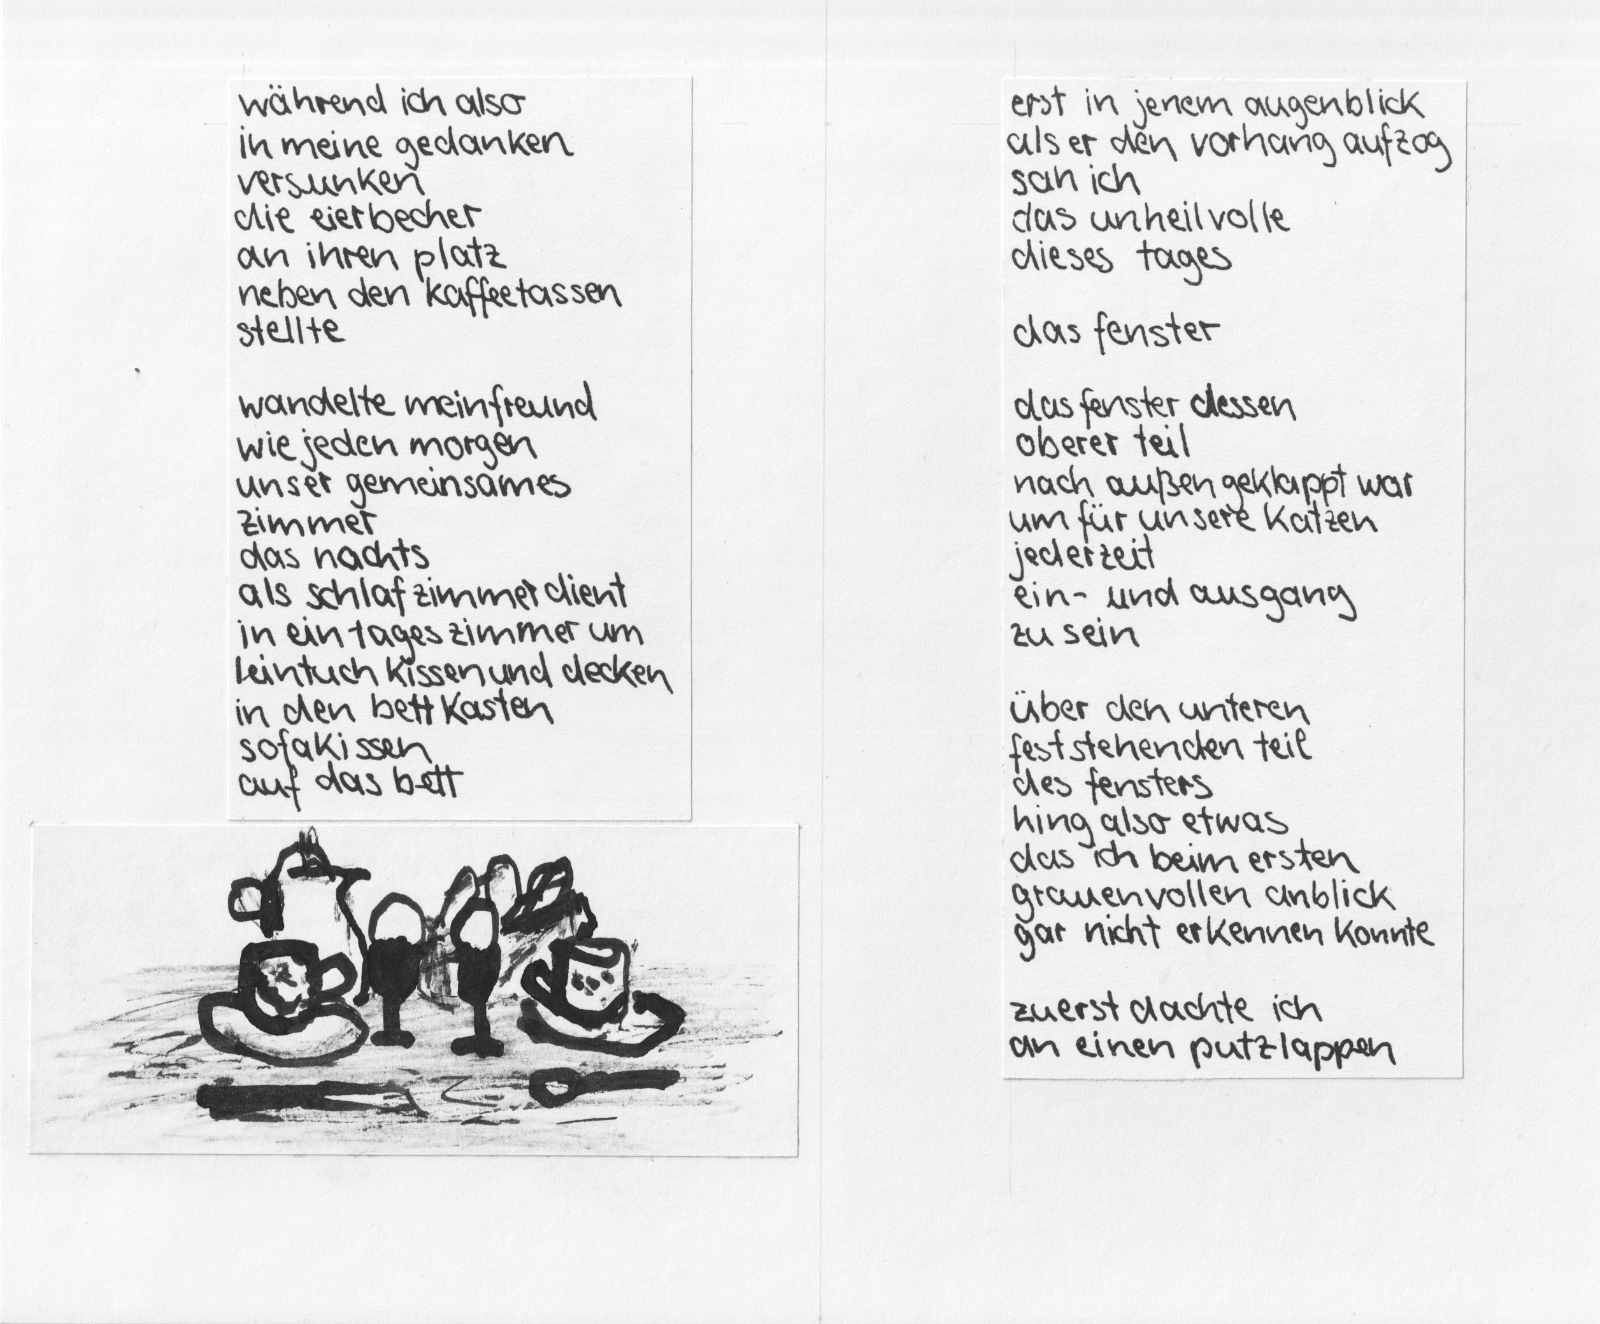 während ich also
in meine gedanken
versunken
die eierbecher
an ihren platz
neben den kaffeetassen
stellte

wandelte mein freund
wie jeden morgen
unser gemeinsames
zimmer
das nachts
als schlafzimmer dient
in ein tageszimmer um
leintuch kissen und decken
in den bettkasten
sofakissen
auf das bett

erst in jenem augenblick
als er den vorhang aufzog
sah ich
das unheilvolle
dieses tages

das fenster

das fenster dessen
oberer teil
nach außen geklappt war
um für unsere katzen
jederzeit
ein- und ausgang
zu sein

über den unteren
feststehenden teil
des fensters
hing also etwas
das ich beim ersten
grauenvollen anblick
gar nicht erkennen konnte

zuerst dachte ich
an einen putzlappen